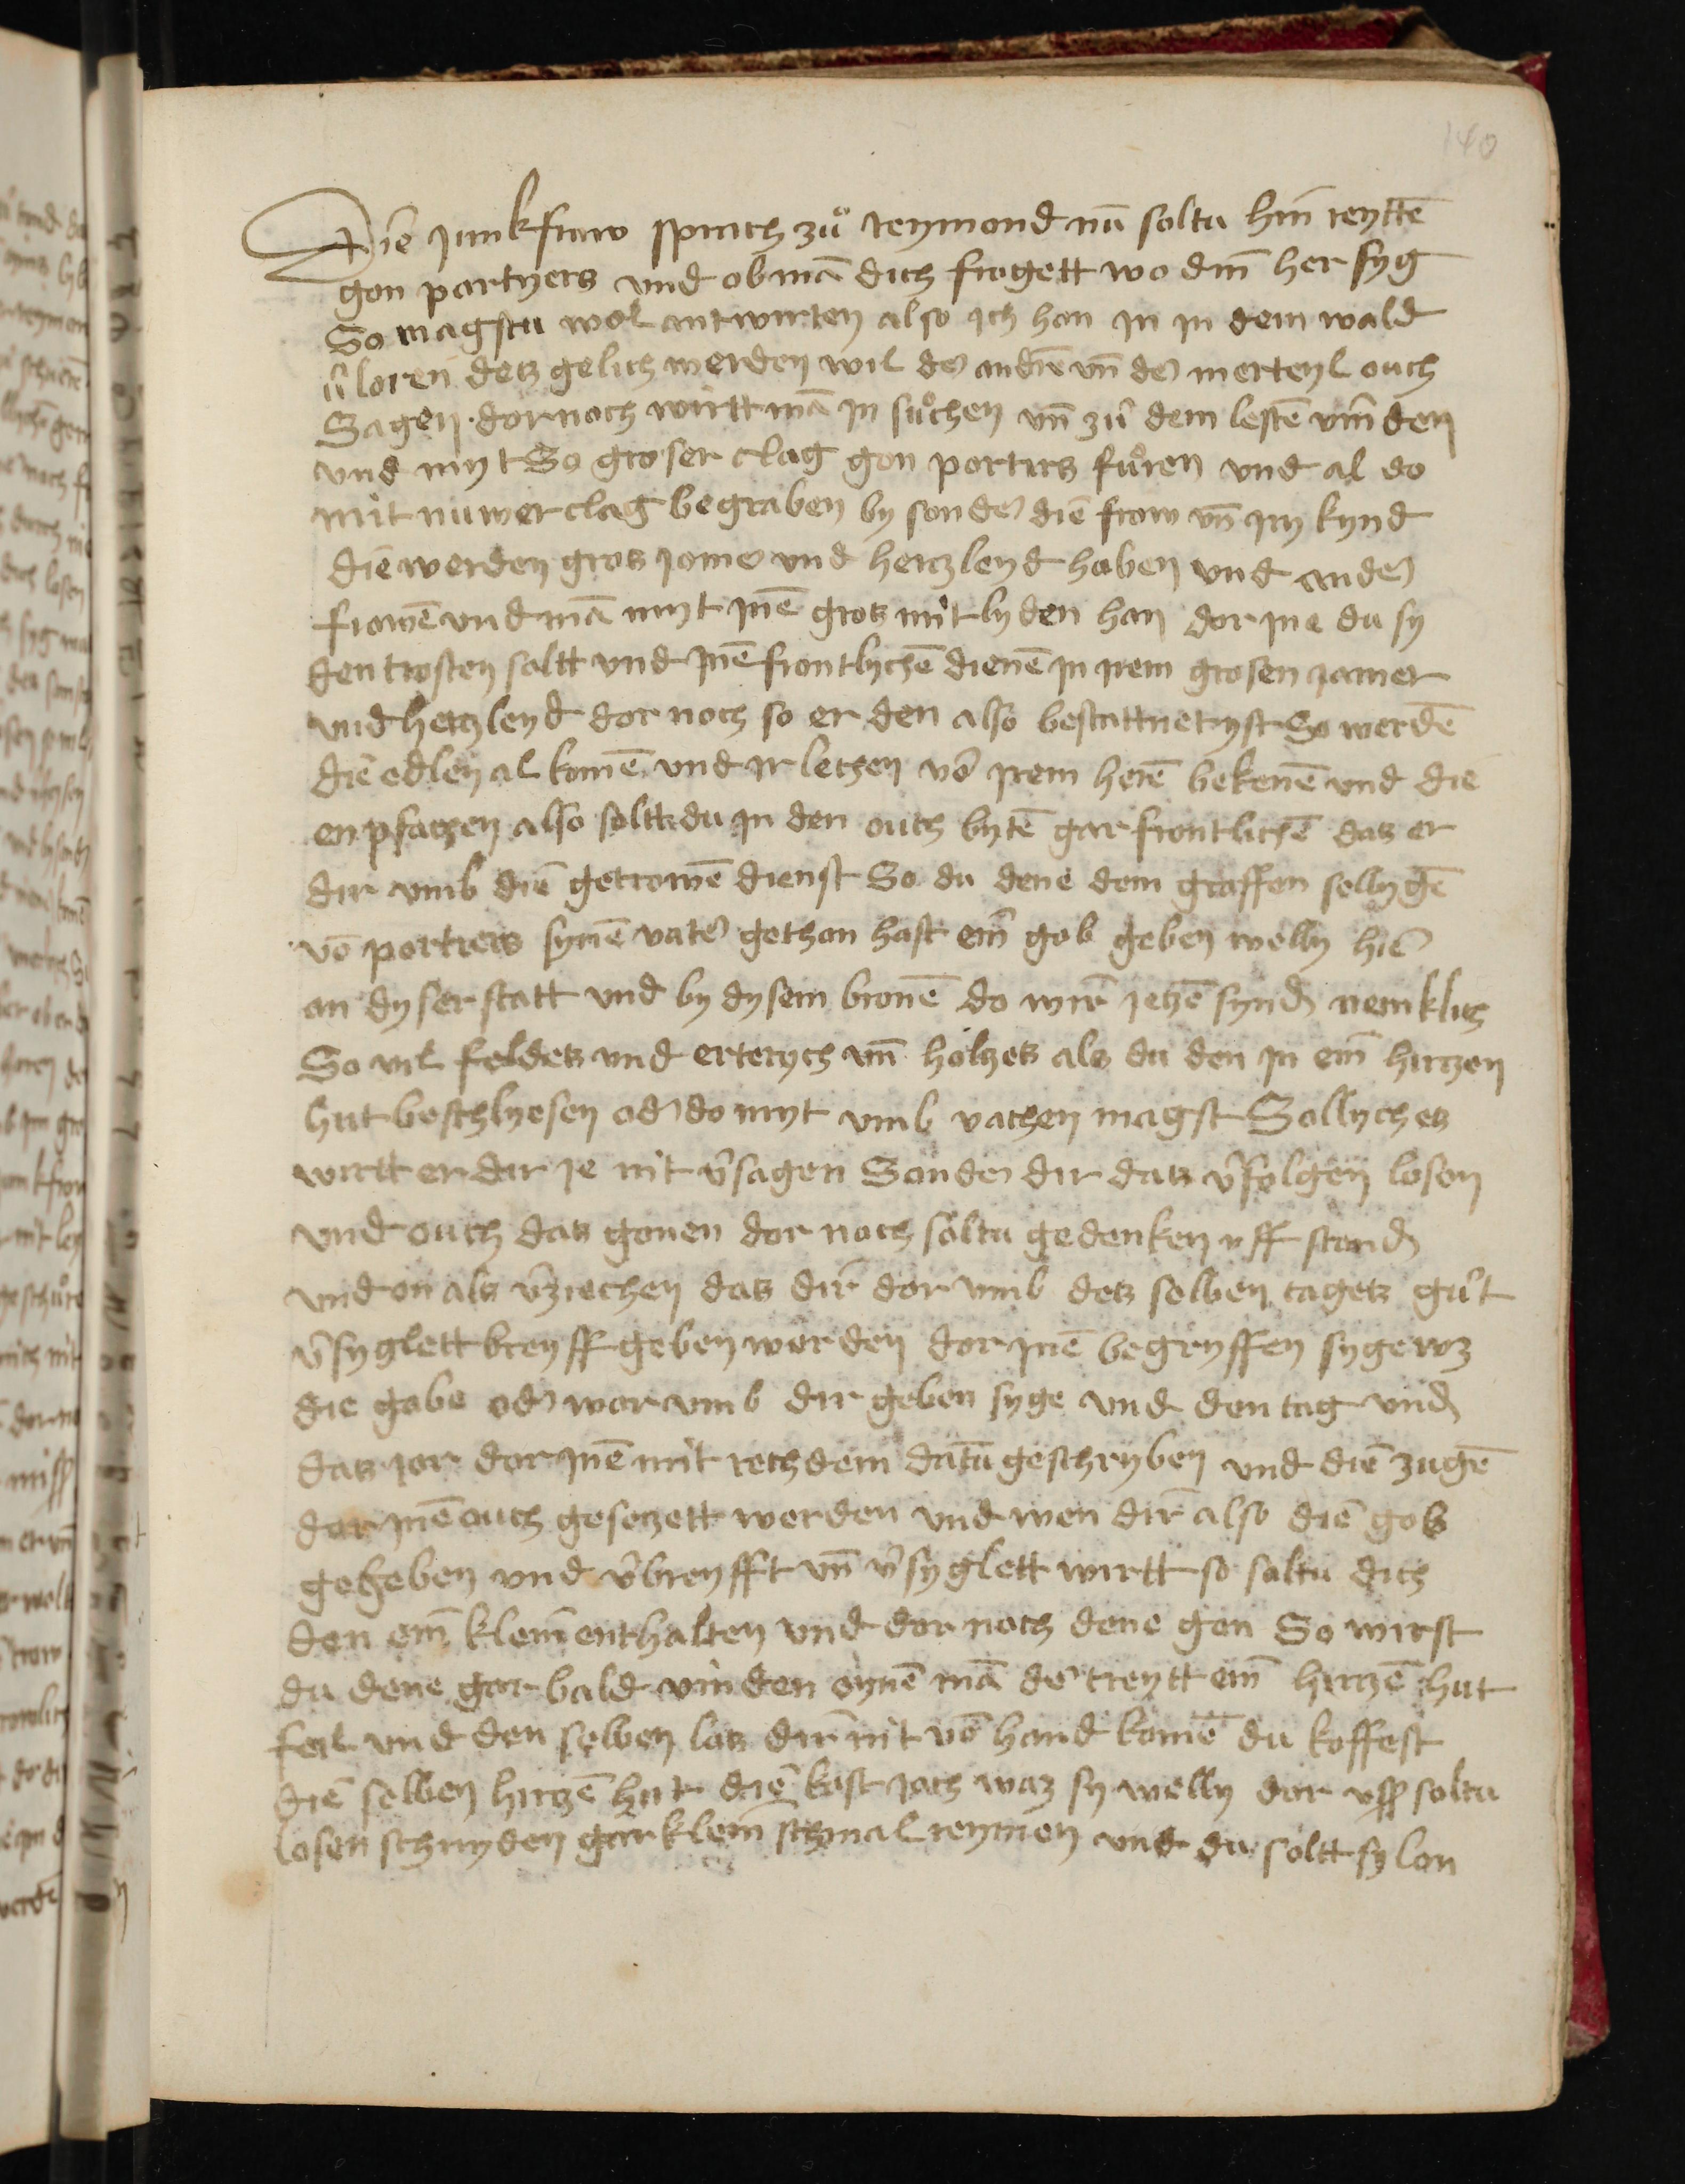 140
Die junkfraw sprach zuͦ reymond nū soltu hin reyttē
gon partyers vnd ob mā dich frogett wo din her syg
So magstu wol antwurten also jch han jn jn dem wald
v̄loren detz gelich werden wil der andrē vn̄ der merteyl ouch
Sagen · dornoch wirtt mā jn suͦchen vn̄ zuͦ dem lestē vinden
vnd myt So groser clag gon portirs fuͦren vnd al do
mit nuwer clag begraben by sonder die frow vn̄ jry kynd
die werden gros jomer vnd hertzleyd haben vnd ander
frowē vnd mā myt jnē gros mitlyden han dor jne du sy
den trosten soltt vnd jnē frontlychē dienē jn jrem grosen jamer
vnd hertzleyd dor noch so er den also bestattnet yst So werdē
die edlen al komē vnd jr lechen vō jrem herē bekenē vnd die
enpfachen also soltt du jn den ouch bytē gar frontlichē das er
dir vmb die getrowē dienst So du dene dem graffen sellygē
vō portiers synē vater gethon hast ein gob geben welly hie
an dyser statt vnd by dysem bronē do wir jetzē synd nemklich
So vil feldetz vnd erterych vn̄ holtzetz als du den jn ein hirtzen
hut beschlyesen oder do myt vmb vachen magst Sollyches
wirtt er dir je nit v̄sagen Sonder dir das v̄folgen losen
vnd ouch das gonen dor noch soltu gedenken vff stond
vnd on als v̄ziechen das dir dor vmb detz selben tagetz guͦt
v̄syglett breyff geben worden dor jnē begryffen syge wz
die gabe oder wor vmb dir geben syge vnd den tag vnd
das jor dor jnē mit rech dem datū geschryben vnd die zugē
dor jnē ouch gesetzett werden vnd wen dir also die gob
gegeben vnd v̄breyfft vn̄ v̄syglett wirtt so soltu dich
den ein klein enthalten vnd dor noch dene gon So wirst
du dene gar bald vinden eynē mā der treytt ein hirtzē hut
feil vnd den selben las dir nit vō hand komē du koffest
die selben hirtzē hut die kost joch waz sy welly dor vsz soltu
losen schnyden gar klein schmal reymen vnd du soltt sy lon